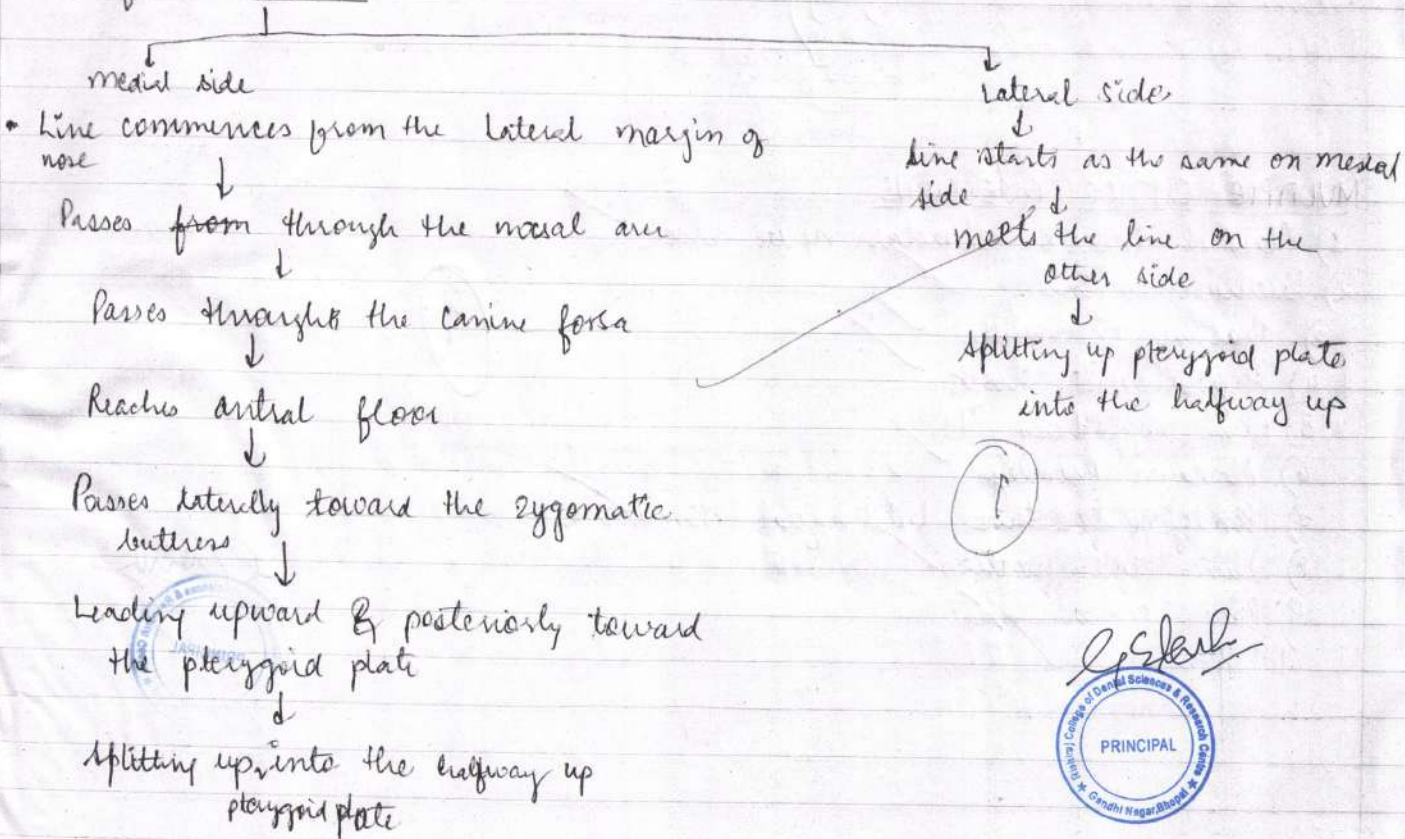 medial side
• Line commences from the lateral margin of
nose
Passes from through the nasal area
Passes throughts the canine fossa
Reaches antral floor
Passes laterally toward the zygomatic
buttress
Leading upward & posteriorly toward
the pterygoid plate
splitting up into the halfway up
pterygoid plate
Lateral side
Line starts as the same on medial
side
metts the line on the
other side
splitting up pterygoid plate
into the halfway up
1
College of Dental Sciences & Research Centre
PRINCIPAL
Gandhi Nagar, Bhopal